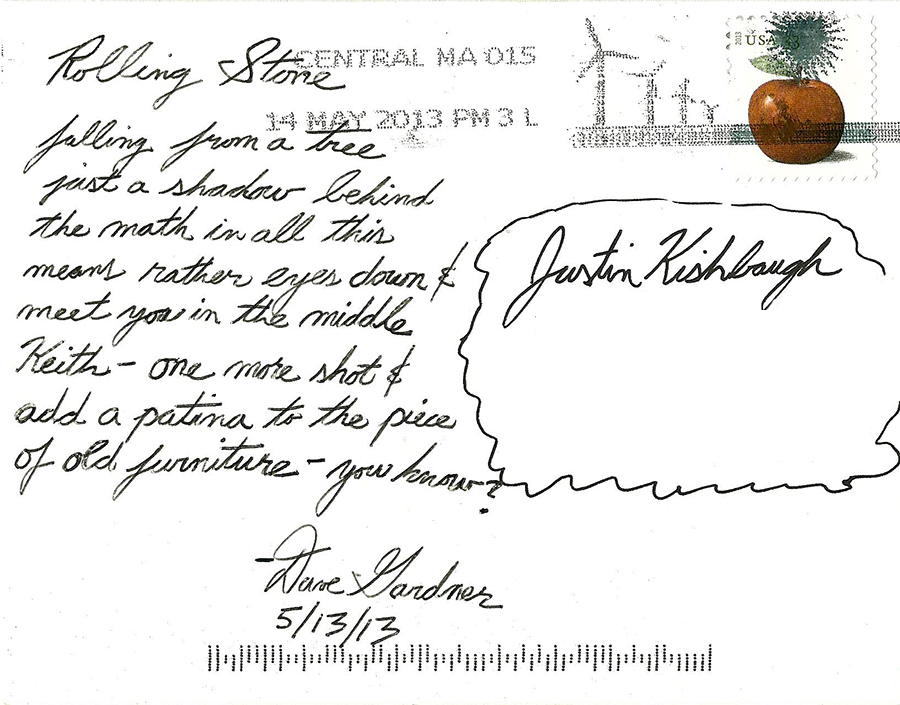 Rolling Stone
CENTRAL MA 015
14 MAY 2013 PM 3 L
2013 USA
falling from a tree
just a shadow behind
the math in all this
means rather eyes down &
meet you in the middle
Keith - one more shot &
add a patina to the piece
of old furniture - you know?
- Dave Gardner
5/13/13
Justin Kishbaugh